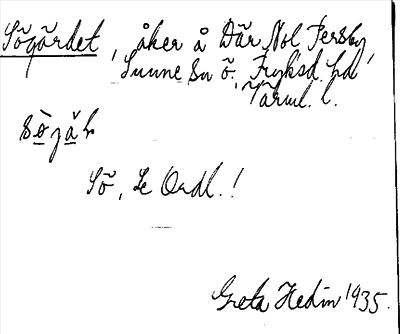 Sögärdet, åker å Där Nol Persby,
Sunne sn Ö. Fryksd. hd
Värml. l.
Sö, Se Ordl.!
Greta Hedin 1935.